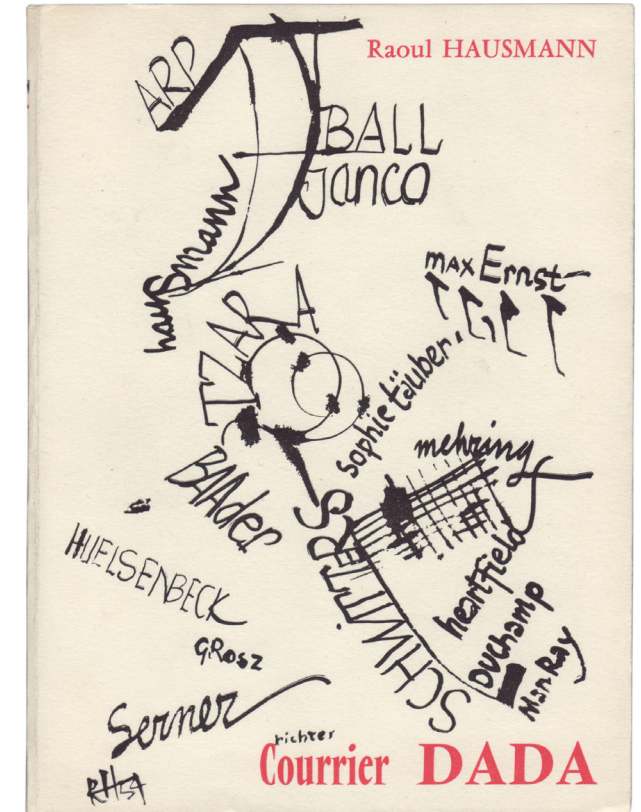 Raoul HAUSMANN
ARP
BALL
Janco
hausmann
max Ernst
TZARA
sophie täuber
mehring
BAAder
SCHWITTERS
HUELSENBECK
heartfield
DUchamp
Man Ray
GROSZ
Serner
richter
Courrier DADA